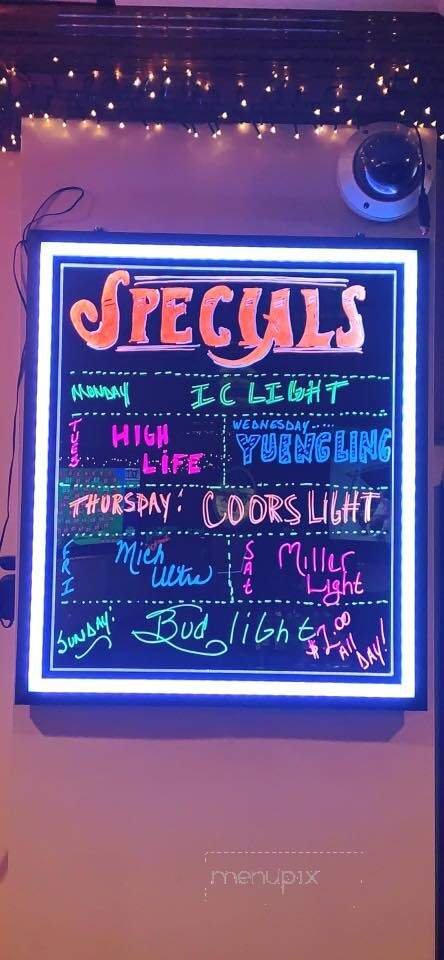 SPECIALS
MONDAY IC LIGHT
TUES HIGH LIFE
WEDNESDAY..... YUENGLING
THURSDAY: COORS LIGHT
FRI Mich Ultra
SAt Miller Light
SUNDAY: Bud light $2.00 All DAY!
menupix